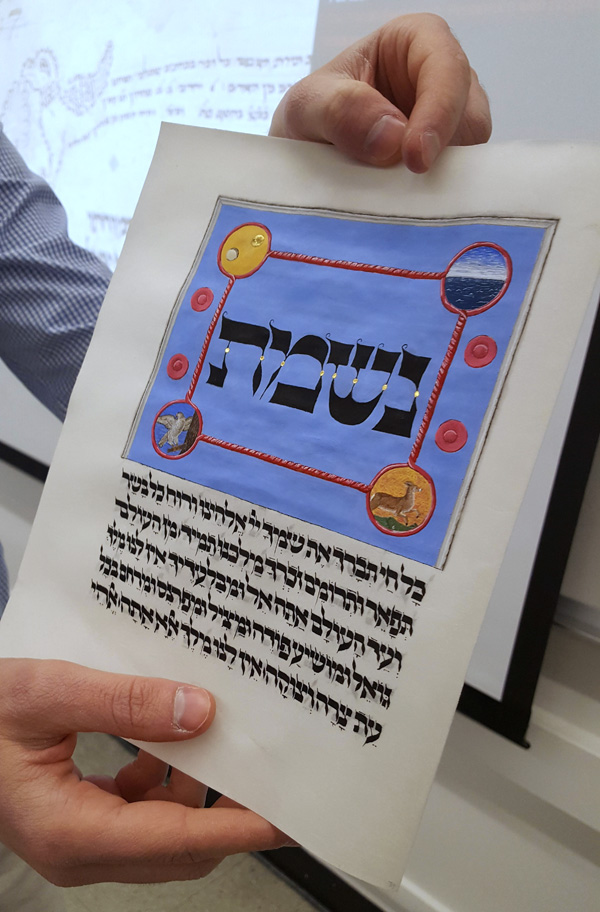 נשמת
כל חי תברך את שמך יי אלהינו ורוח כל בשר
תפאר ותרומם זכרך מלכנו תמיד מן העולם
ועד העולם אתה אל ומבלעדיך אין לנו מלך
גואל ומושיע פודה ומציל ומפרנס ומרחם בכל
עת צרה וצוקה אין לנו מלך אלא אתה אלהי